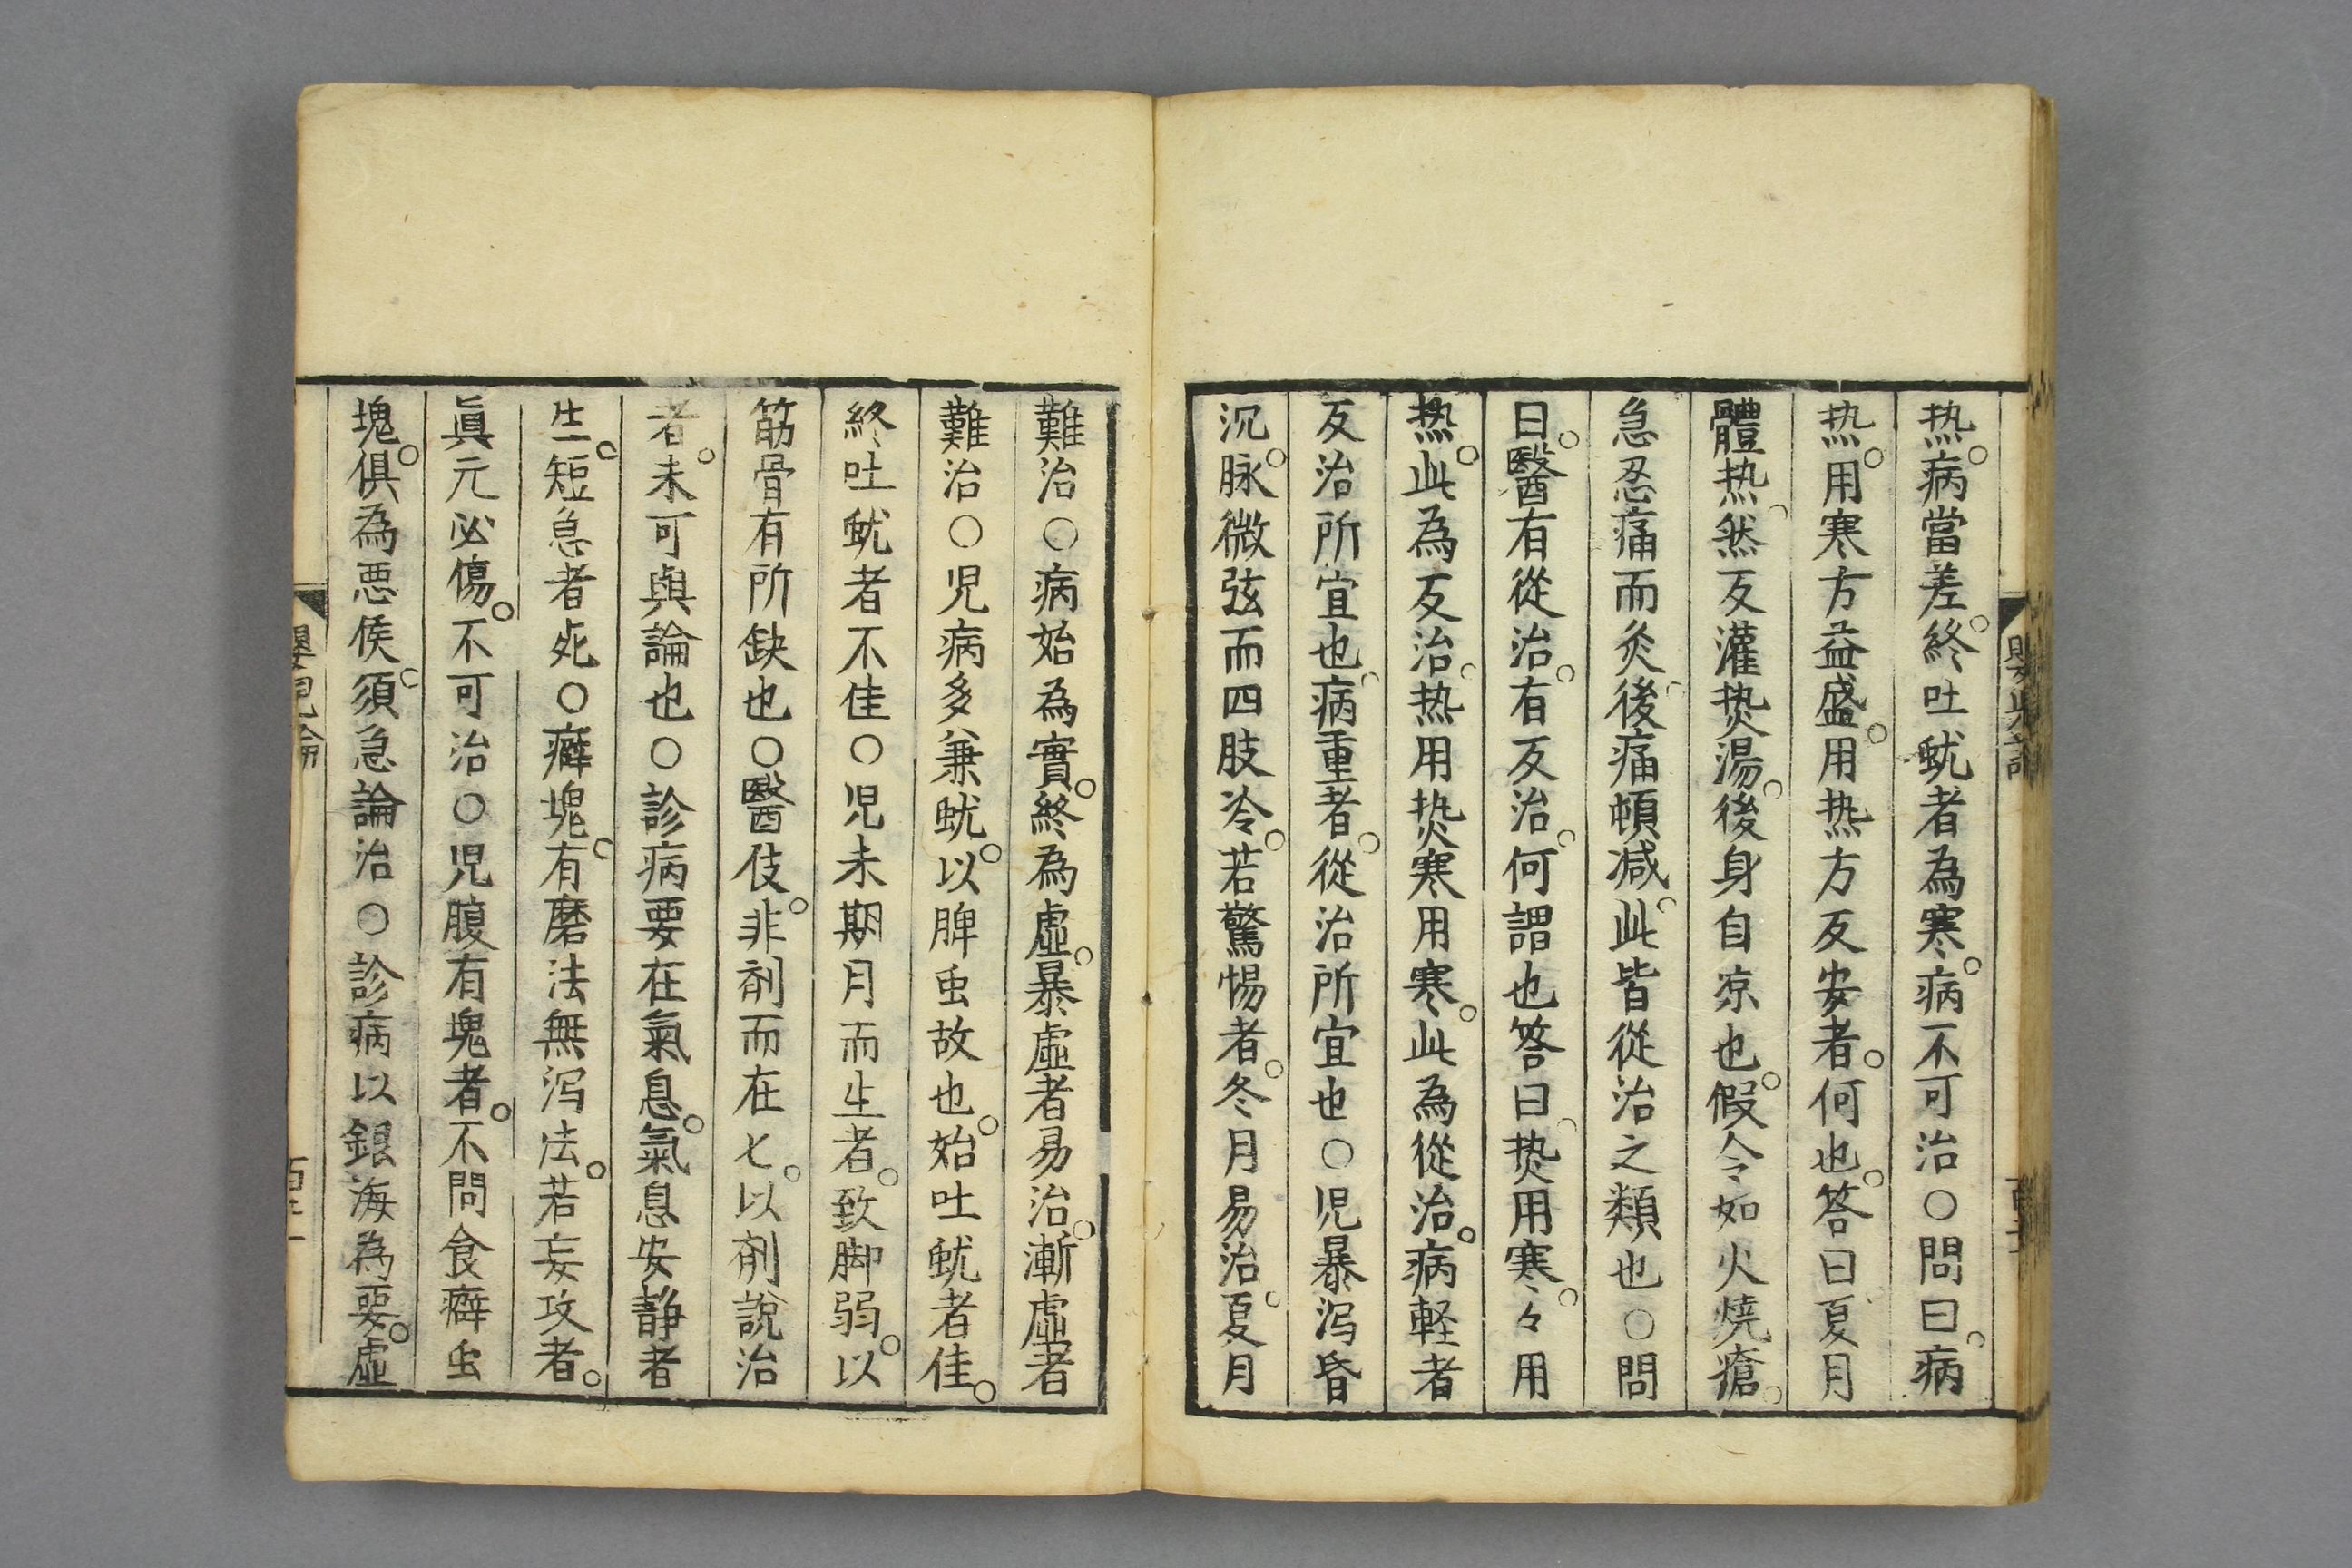 热。病當差。終吐蚘者為寒。病不可治○問曰。病
热。用寒方益盛。用热方反安者。何也。答曰。夏月
體热。然反灌热湯。後身自凉也。假令如火燒瘡。
急忍痛而灸。後痛頓减。此皆從治之類也○問
曰。醫有從治。有反治。何謂也答曰。热用寒。々用
热。此為反治。热用热寒用寒。此為從治。病軽者
反治所宜也。病重者。從治所宜也○児暴泻昏
沉。脉微弦而四肢冷。若驚惕者。冬月易治。夏月
難治○病始為實。終為虚。暴虚者易治。漸虚者
難治○児病多兼蚘。以脾虫故也。始吐蚘者佳。
終吐蚘者不佳○児未期月而生者。致脚弱。以
筋骨有所缺也○醫伎。非剤而在七。以剤說治
者。未可與論也○診病要在氣息。氣息安静者
生。短急者死○癖塊。有磨法無泻法。若妄攻者。
眞元必傷。不可治○児腹有塊者。不問食癖虫
塊。俱為悪候。須急論治○診病以銀海為要。虚
嬰児論